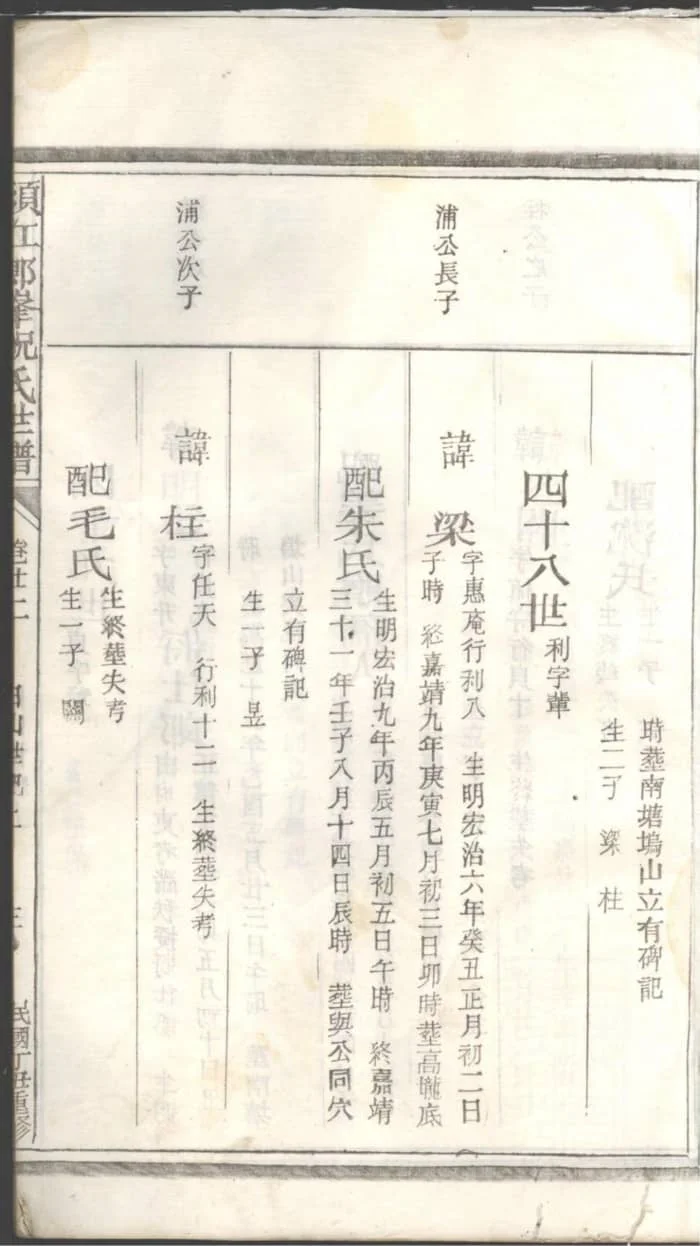 時塟南塘塢山立有碑記
生二子　梁　柱
四十八世利字輩
浦公長子
諱梁
字惠庵行利八　生明宏治六年癸丑正月初二日
子時　終嘉靖九年庚寅七月初三日卯時塟高隴底
配朱氏
生明宏治九年丙辰五月初五日午時　終嘉靖
三十一年壬子八月十四日辰時　塟與公同穴
立有碑記
生一子　昱
浦公次子
諱柱
字任天　行利十二　生終塟失考
配毛氏
生終塟失考
生一子　關
須江郎峯祝氏世譜
卷廿二
民國丁丑重修